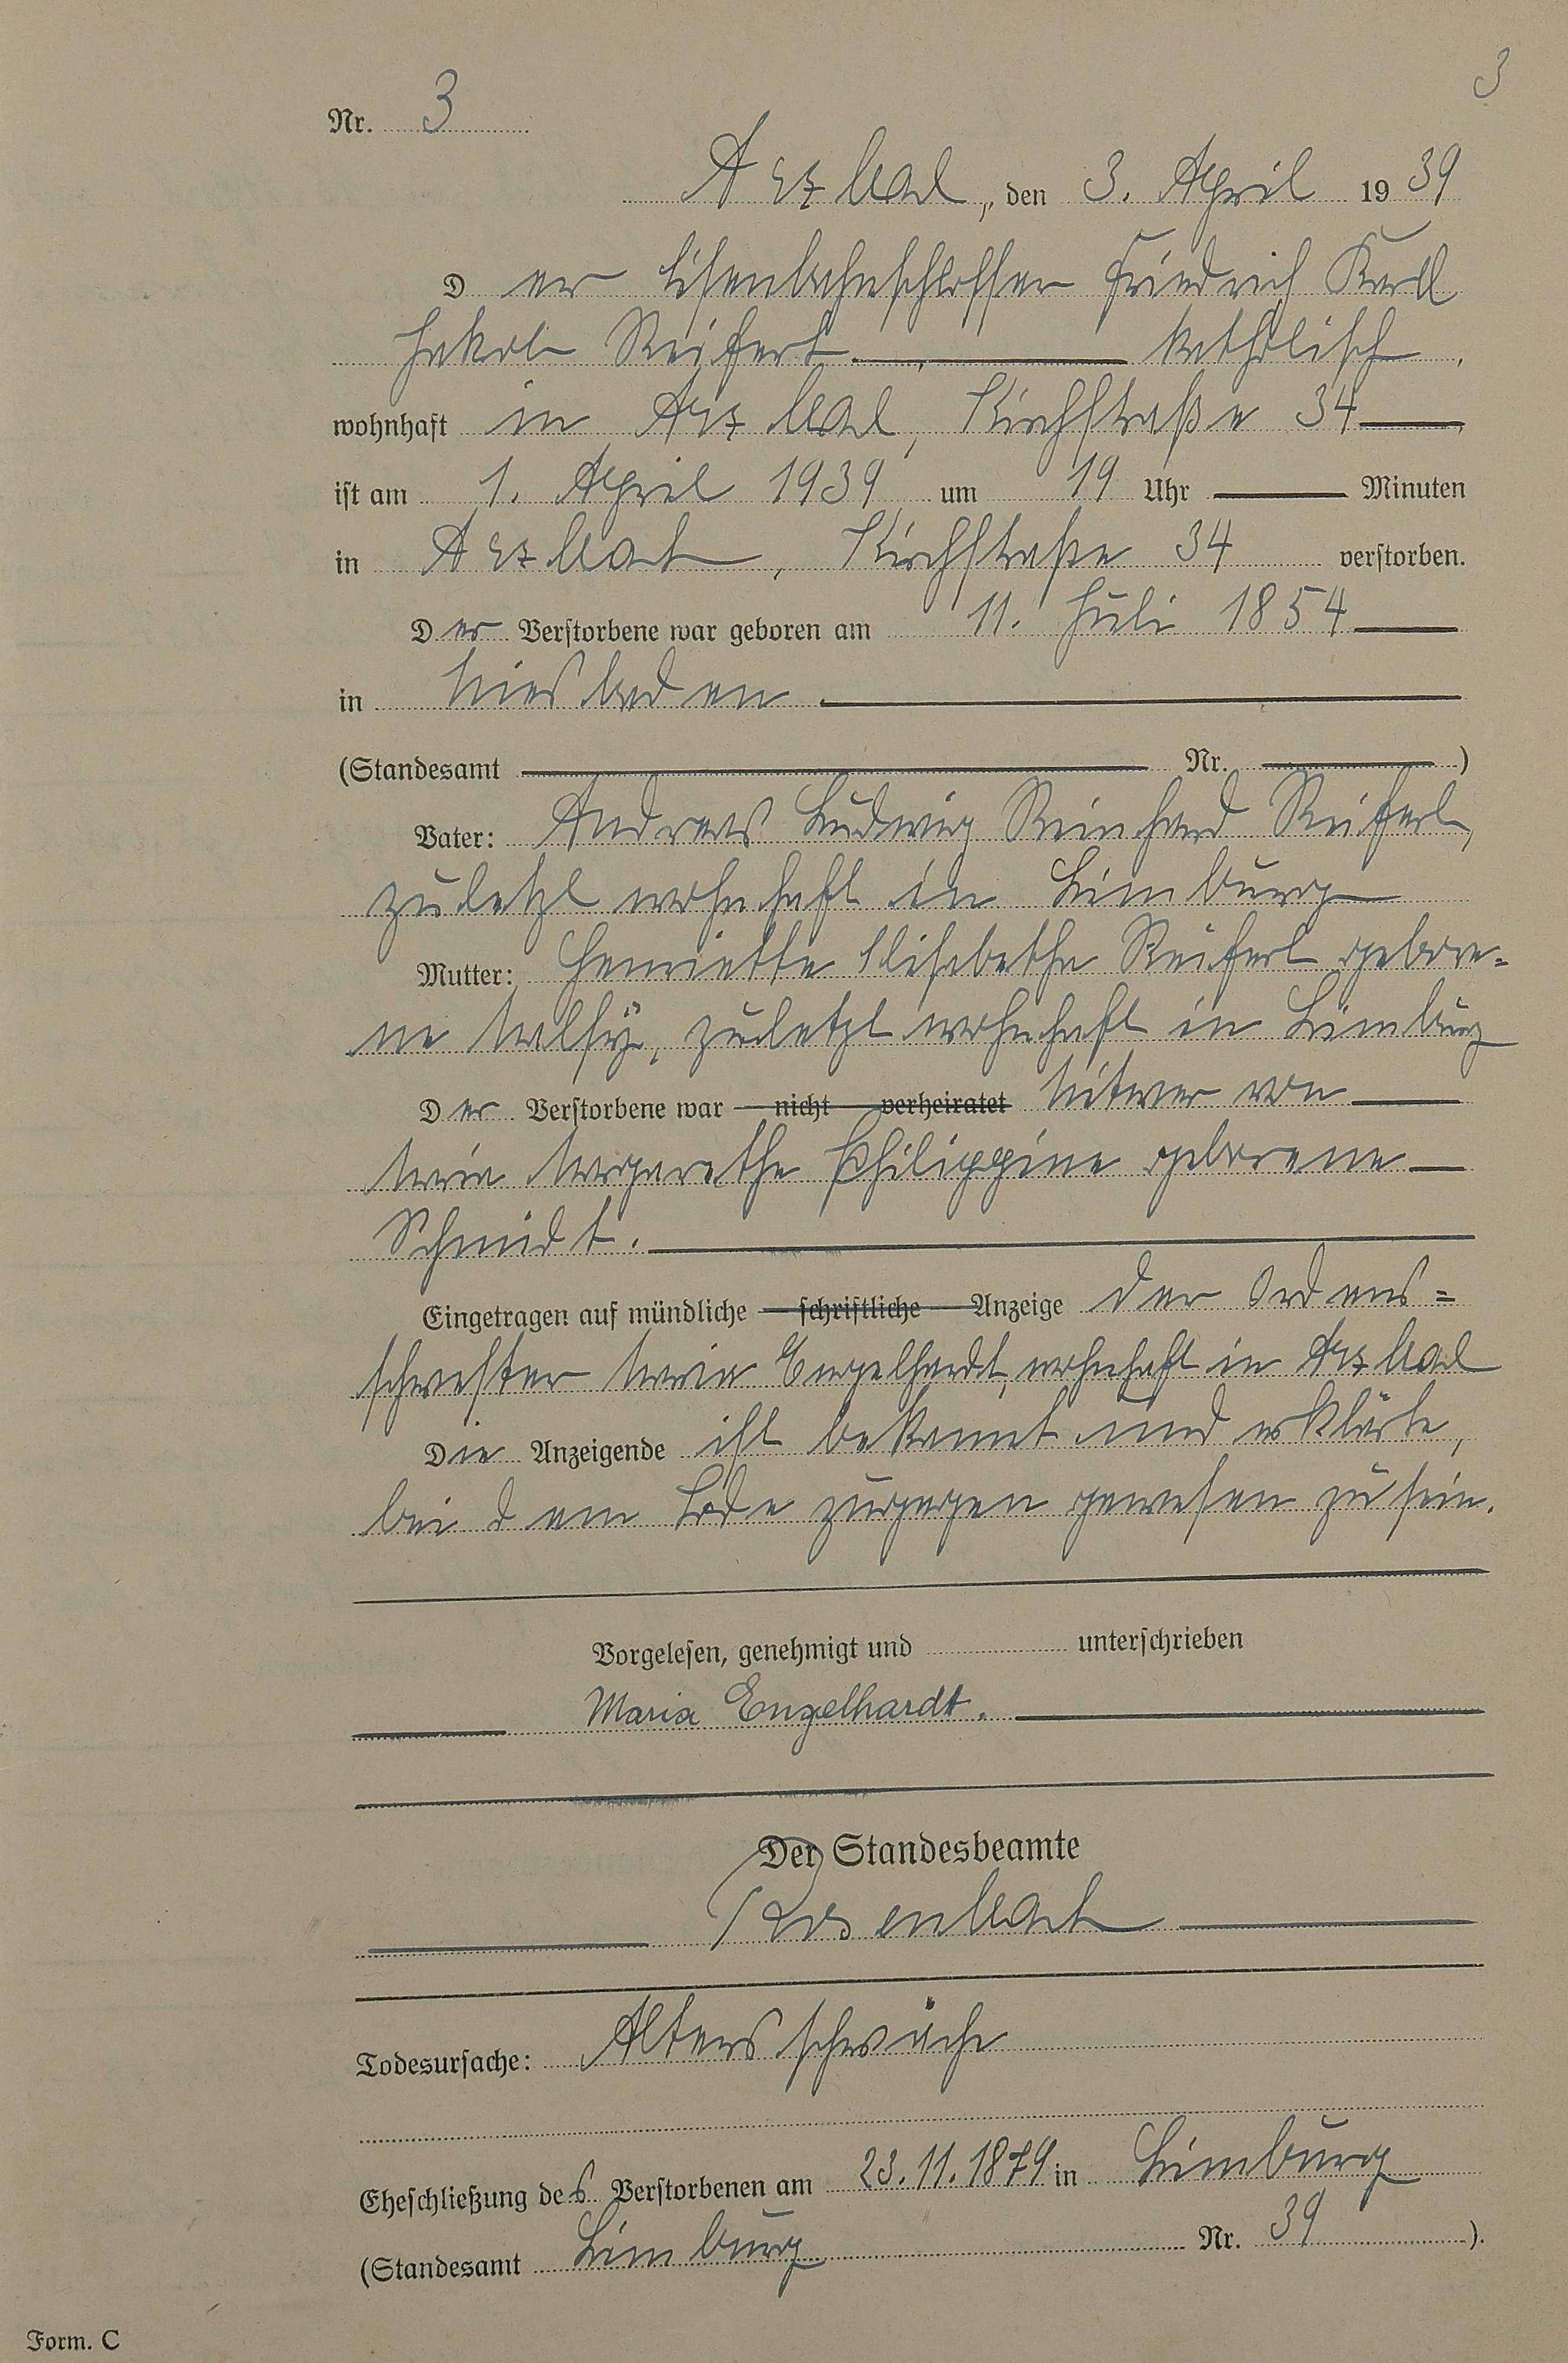 3
Nr. 3
Arzbach, den 3. April 1939
Der Eisenbahnschlosser Friedrich Karl
Jakob Reifert katholisch,
wohnhaft in Arzbach, Kirchstraße 34
ist am 1. April 1939 um 19 Uhr Minuten
in Arzbach, Kirchstraße 34 verstorben.
Der Verstorbene war geboren am 11. Juli 1854
in Wiesbaden
(Standesamt Nr. )
Vater: Andreas Ludwig Reinhard Reifert,
zuletzt wohnhaft in Limburg
Mutter: Henriette Elisabethe Reifert gebore-
ne zuletzt wohnhaft in Limburg
Der Verstorbene war nicht verheiratet Witwer von
Maria Margarethe Philippine geborene
Schmidt.
Eingetragen auf mündliche schriftliche Anzeige der Ordens=
schwester Maria Engelhardt, wohnhaft in Arzbach
Die Anzeigende ist bekannt und erklärte,
bei dem Tode zugegen gewesen zu sein.
Vorgelesen, genehmigt und unterschrieben
Maria Engelhardt.
Der Standesbeamte
Todesursache: Altersschwäche
Eheschließung des Verstorbenen am 23.11.1879 in Limburg
(Standesamt Limburg Nr. 39 ).
Form. C